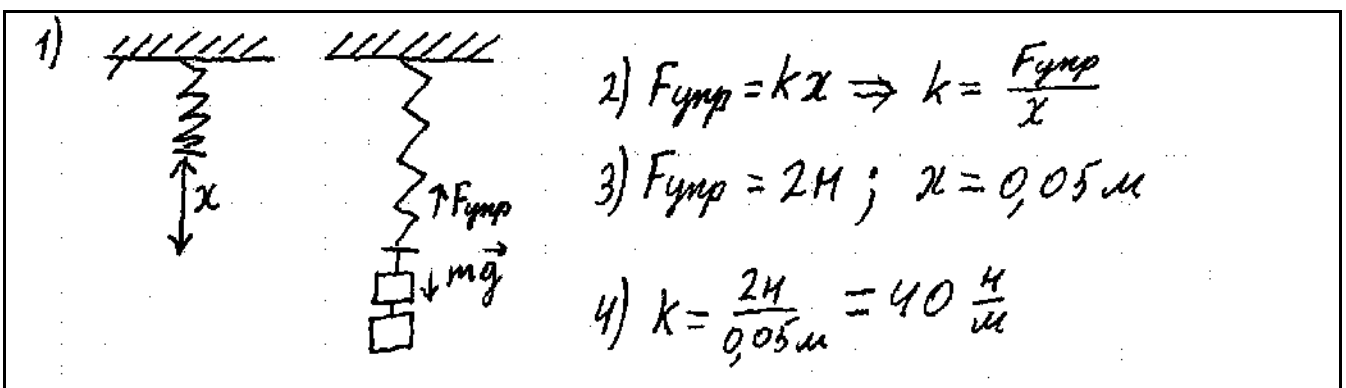 1)
x
Fупр
mg⃗
2) Fупр = kx ⇒ k = Fупр/x
3) Fупр = 2Н ; x = 0,05 м
4) k = 2Н/0,05м = 40 Н/м